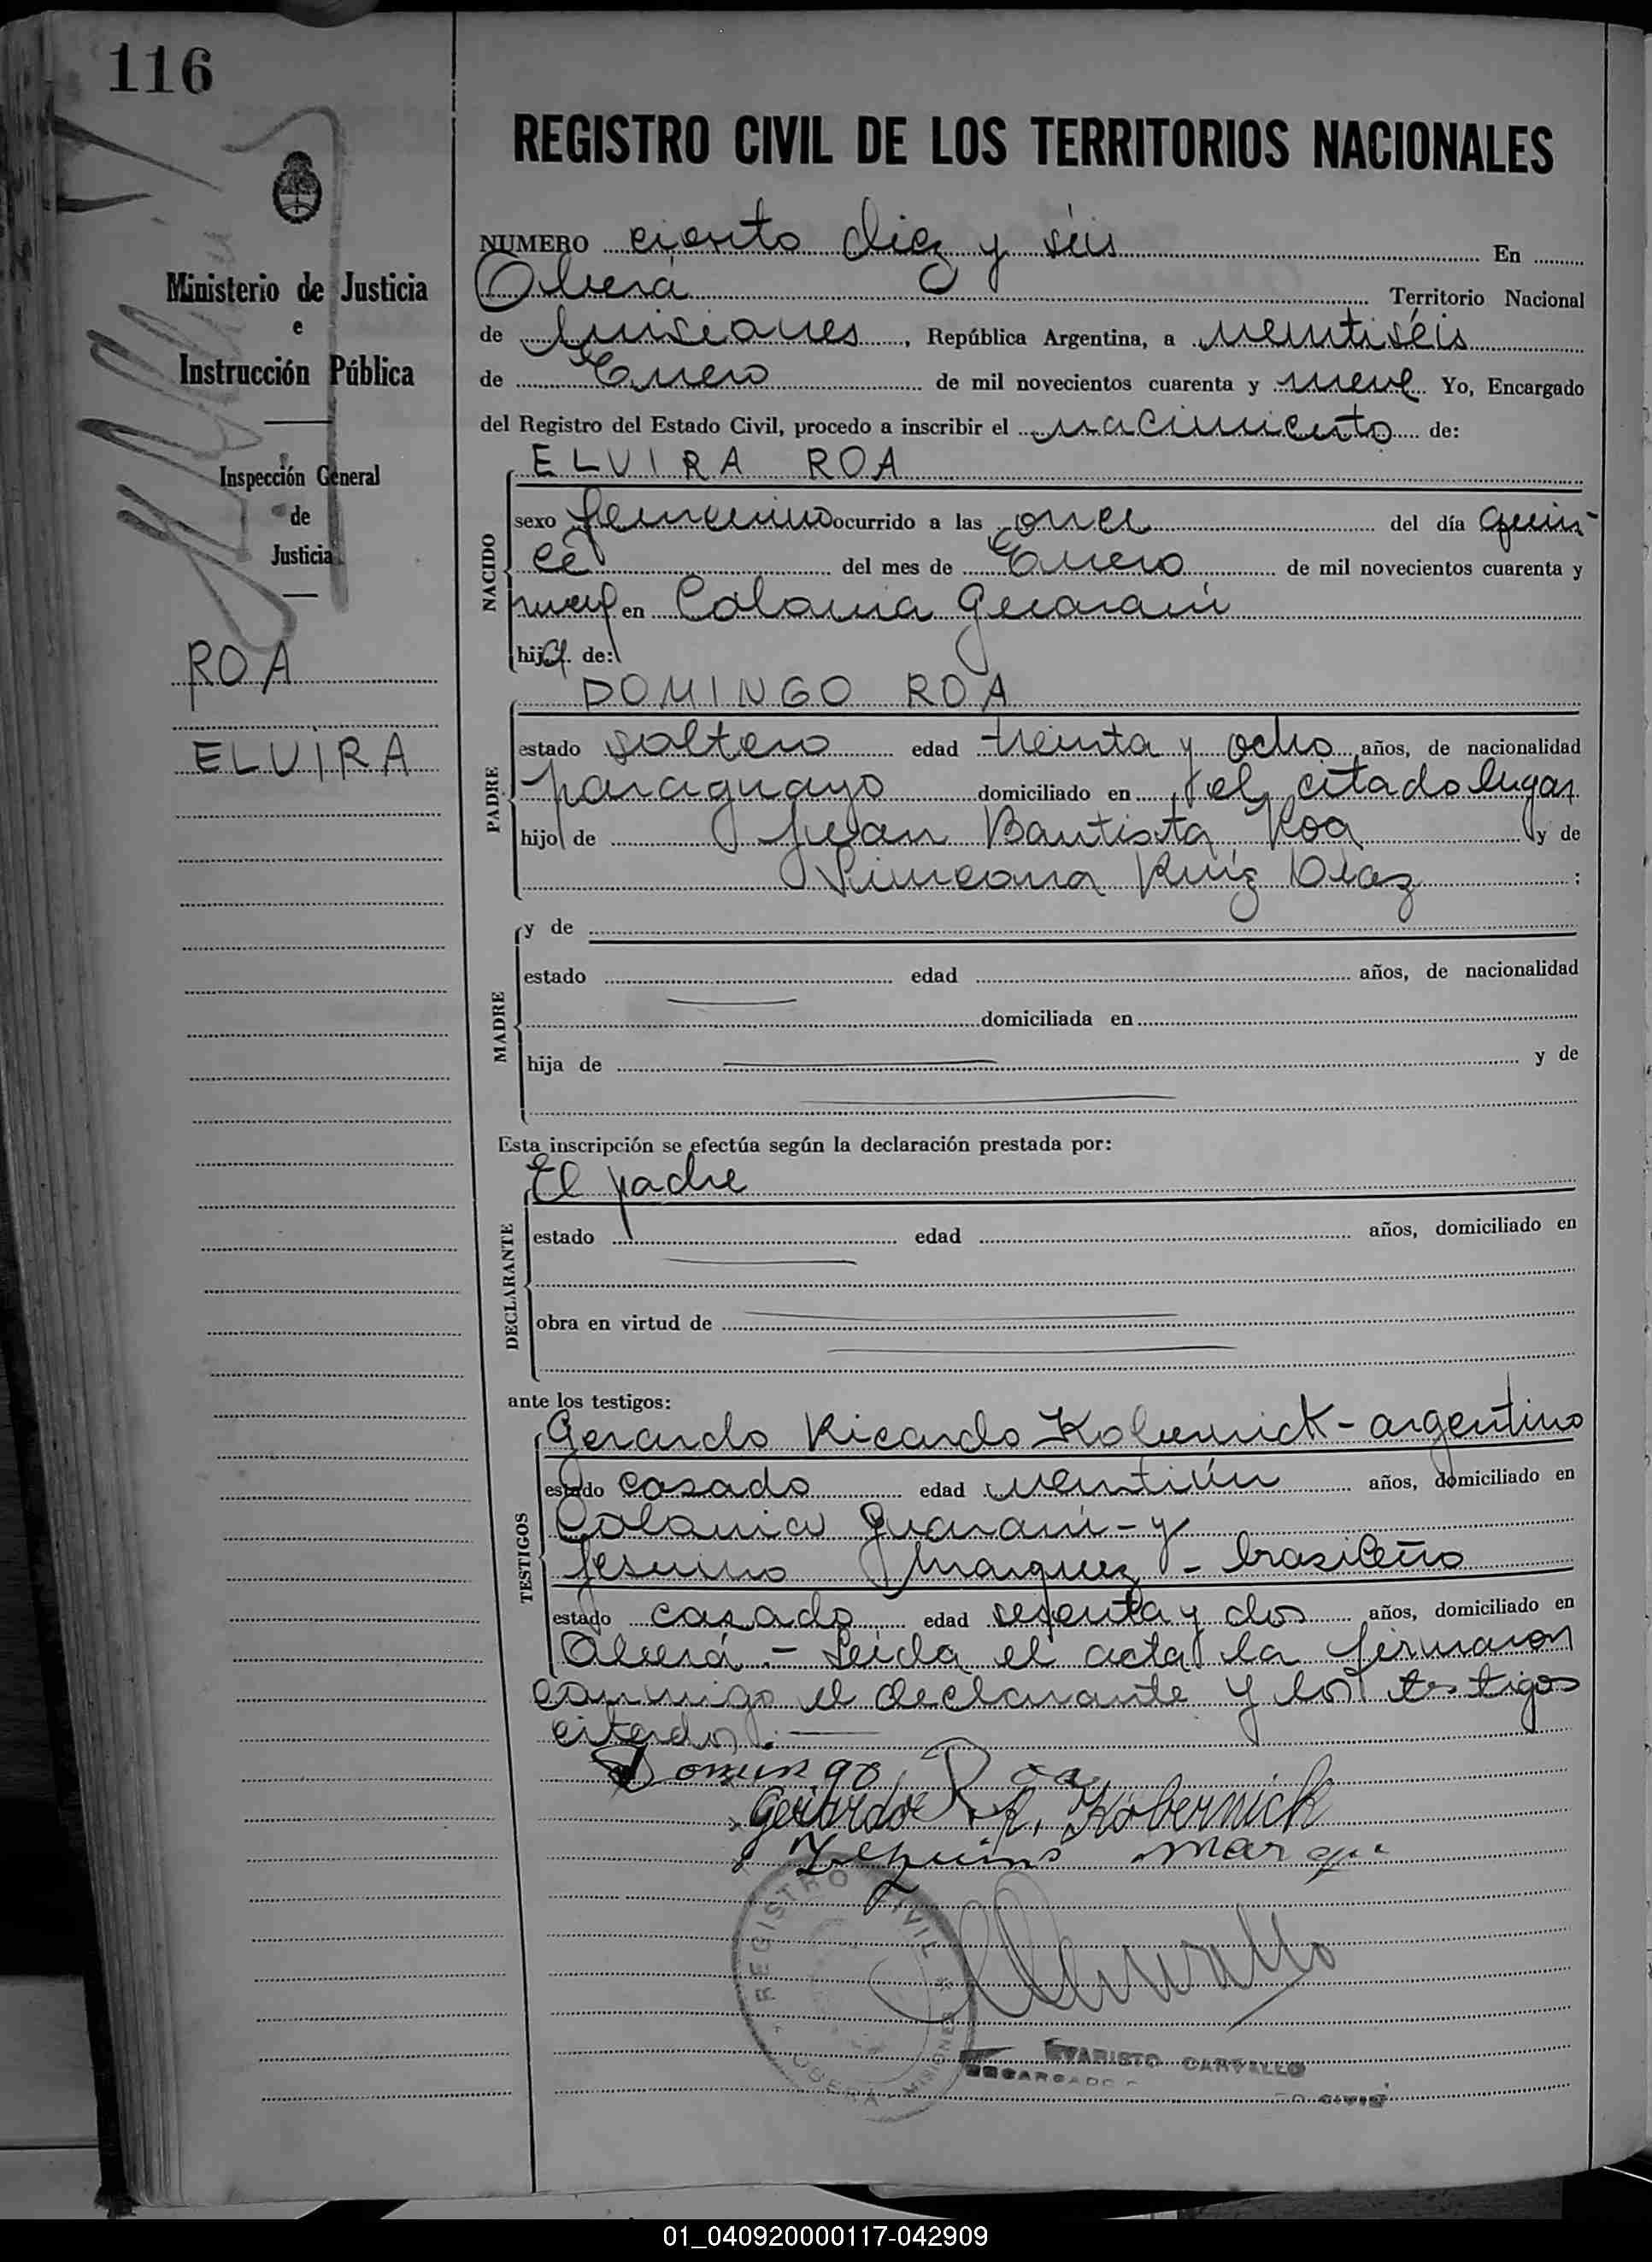 116
REGISTRO CIVIL DE LOS TERRITORIOS NACIONALES
Ministerio de Justicia
e
Instrucción Pública
Inspección General
de
Justicia
ROA
ELVIRA
NUMERO ciento diez y séis En
Oberá Territorio Nacional
de Misiones, República Argentina, a veintiséis
de Enero de mil novecientos cuarenta y nueve Yo, Encargado
del Registro del Estado Civil, procedo a inscribir el nacimiento de:
NACIDO
ELVIRA ROA
sexo femenino ocurrido a las once del día quin-
ce del mes de Enero de mil novecientos cuarenta y
nueve en Colonia Guaraní
hija de:
PADRE
DOMINGO ROA
estado soltero edad treinta y ocho años, de nacionalidad
paraguayo domiciliado en el citado lugar
hijo de Juan Bautista Roa y de
Simeona Ruíz Díaz ;
MADRE
y de
estado edad años, de nacionalidad
domiciliada en
hija de y de
Esta inscripción se efectúa según la declaración prestada por:
DECLARANTE
El padre
estado edad años, domiciliado en
obra en virtud de
ante los testigos:
TESTIGOS
Gerardo Ricardo Kobernick - argentino
estado casado edad veintiún años, domiciliado en
Colonia Guaraní - y
Jesuino Marquez - brasileño
estado casado edad sesenta y dos años, domiciliado en
Oberá.- Leída el acta la firmaron
conmigo el declarante y los testigos
citados.
Domingo Roa
Gerardo R. Kobernick
REGISTRO CIVIL
OBERA MISIONES
EVARISTO CARVALLO
ENCARGADO
CIVIL
01_040920000117-042909